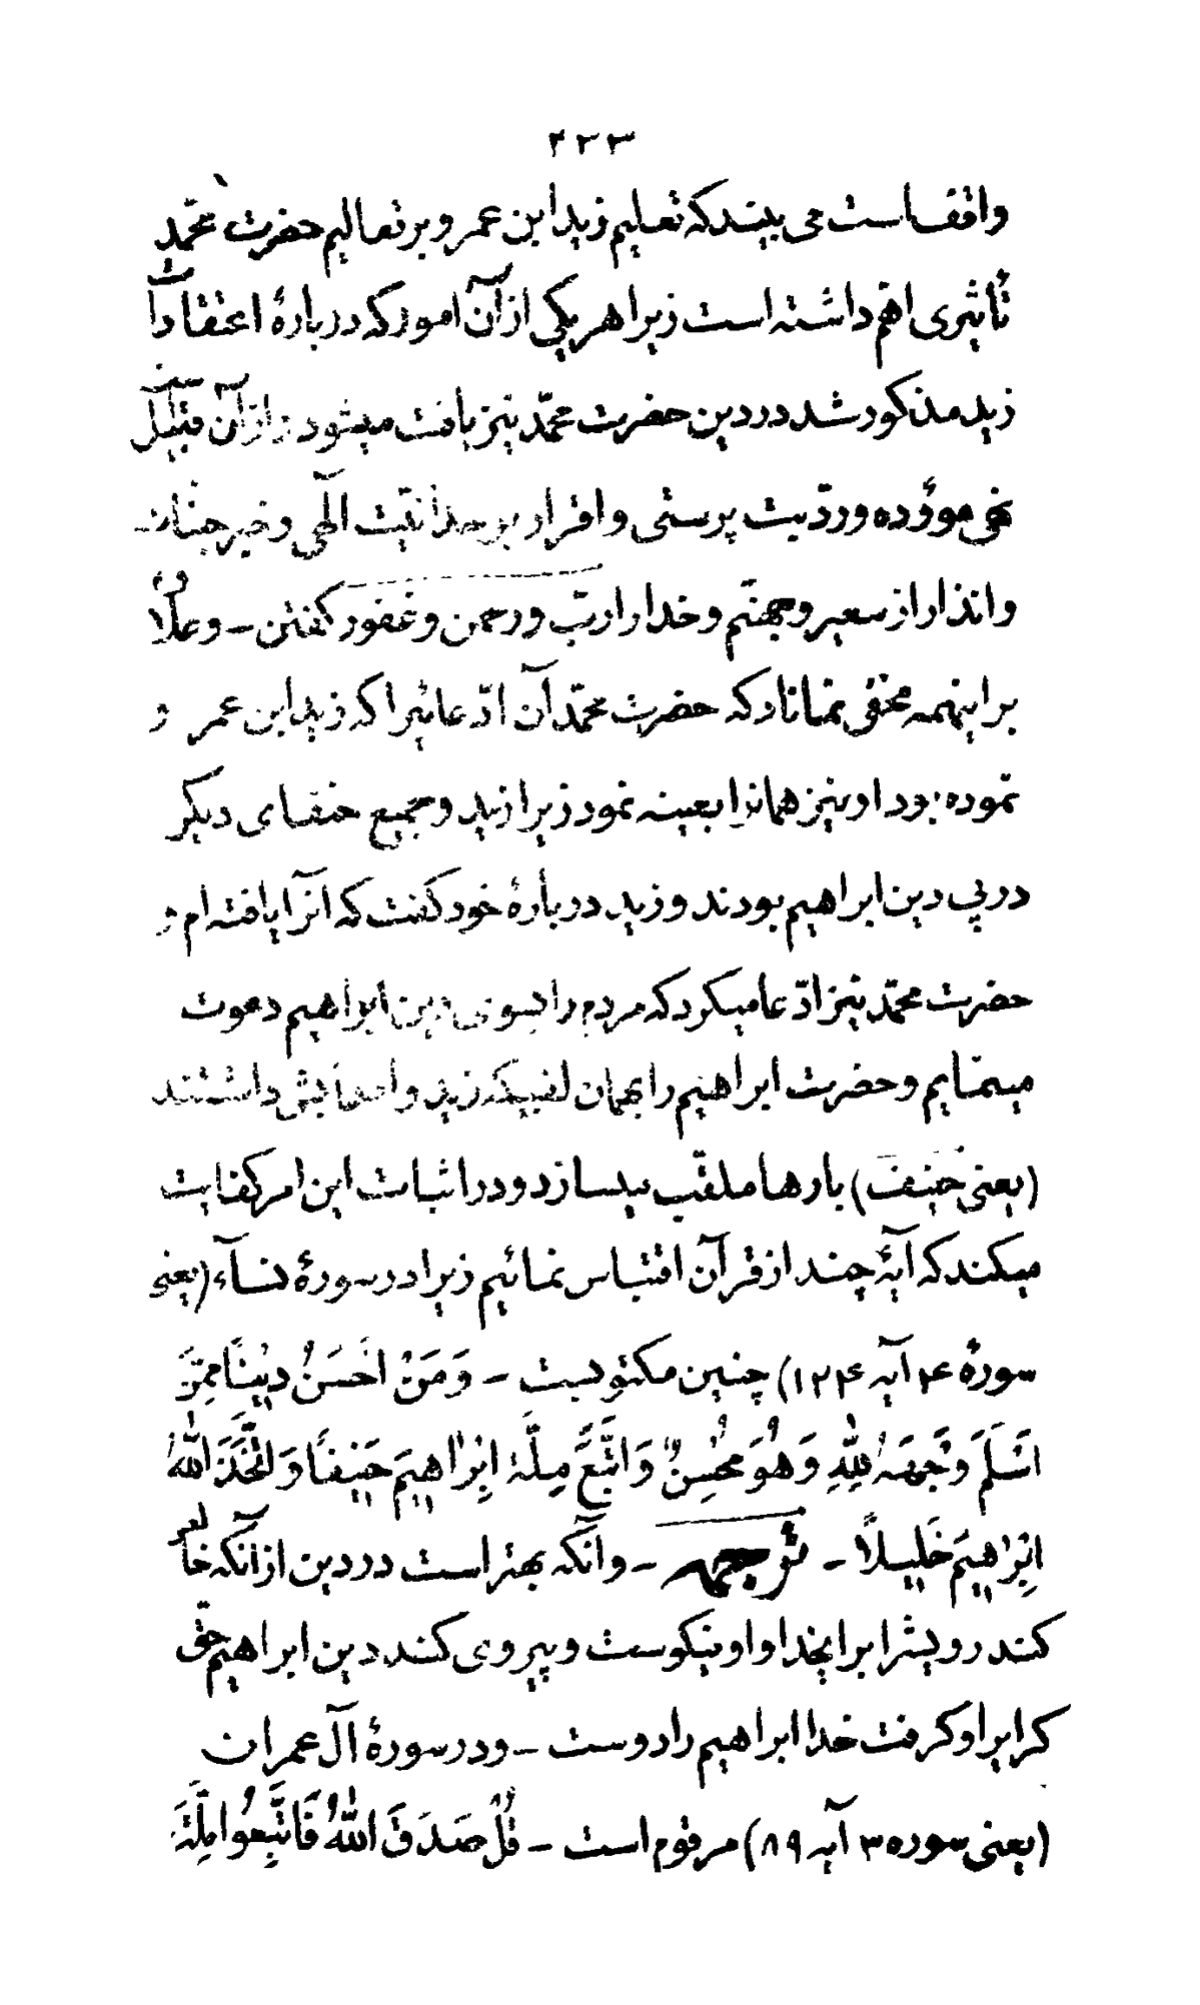 ۲۲۳
واقف است می بیند که تعلیم زید ابن عمرو بر تعالیم حضرت محمّد
تأثیری اهم داشته است زیرا هر یکی از آن امور که دربارهٔ اعتقادات
زید مذکور شد در دین حضرت محمّد نیز یافت میشود و از آن قبیل
نهی موؤده وردّ بت پرستی و اقرار بوحدانیّت الٓهی و خبر جنان
وانذار از سعیر و جهنّم و خدا را ربّ و رحمن و غفور گفتن ـ وعلاوه
بر اینهمه مخفی نماناد که حضرت محمّد آن ادّعائیرا که زید ابن عمرو
نموده بود او نیز همانرا بعینه نمود زیرا زید و جمیع حنفای دیگر
در پی دین ابراهیم بودند و زید دربارهٔ خود گفت که آنرا یافته ام و
حضرت محمّد نیز ادّعا میکرد که مردم را بسوی دین ابراهیم دعوت
مینمایم و حضرت ابراهیم را بهمان لقبیکه زید و اصحابش داشتند
(یعنی حَنِیفَ) بارها ملقّب میسازد و در اثبات این امر کفایت
میکند که آیهٔ چند از قرآن اقتباس نمائیم زیرا در سورهٔ نسآء (یعنی
سورهٔ ۴ آیه ۱۲۴) چنین مکتوبست ـ وَمَنْ اَحْسَنُ دِیْنًا مِمَّنْ
اَسْلَمَ وَجْهَهُ لِلّٰهِ وَهُوَ مُحْسِنٌ وَاتَّبَعَ مِلَّةَ اِبْرٰاهِیْمَ حَنِیْفًا وَاتَّخَذَ اللّٰهُ
اِبْرٰهِیْمَ خَلِیلاً ـ ترجمه ـ وآنکه بهتر است در دین از آنکه خالص
کند رویشرا برای خدا و او نیکوست و پیروی کند دین ابراهیم حق
گرا برا و گرفت خدا ابراهیم را دوست ـ و در سورهٔ آل عمران
(یعنی سوره ۳ آیه ۸۹) مرقوم است ـ قُلْ صَدَقَ اللّٰهُ فَاتَّبِعُوا مِلَّةَ